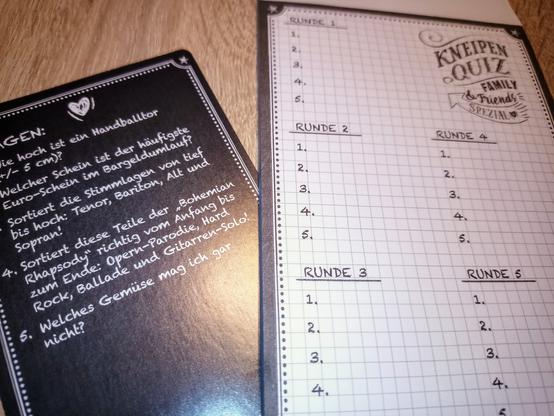 GEN:
Wie hoch ist ein Handballtor
+/- 5 cm)?
Welcher Schein ist der häufigste
Euro-Schein im Bargeldumlauf?
Sortiert die Stimmlagen von tief
bis hoch: Tenor, Bariton, Alt und
Sopran!
4. Sortiert diese Teile der „Bohemian
Rhapsody" richtig vom Anfang bis
zum Ende: Opern-Parodie, Hard
Rock, Ballade und Gitarren-Solo!
5. Welches Gemüse mag ich gar
nicht?
RUNDE 1
1.
2.
3.
4.
5.
KNEIPEN
QUIZ
FAMILY
& Friends
SPEZIAL
RUNDE 2
1.
2.
3.
4.
5.
RUNDE 4
1.
2.
3.
4.
5.
RUNDE 3
1.
2.
3.
4.
RUNDE 5
1.
2.
3.
4.
5